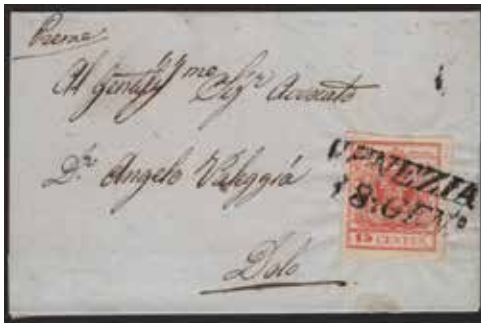 Preme
Al Gentilss.mo Sigr Avvocato
Dr Angelo Valeggiá
Dolo
VENEZIA
18. GEN.o
15 CENTES